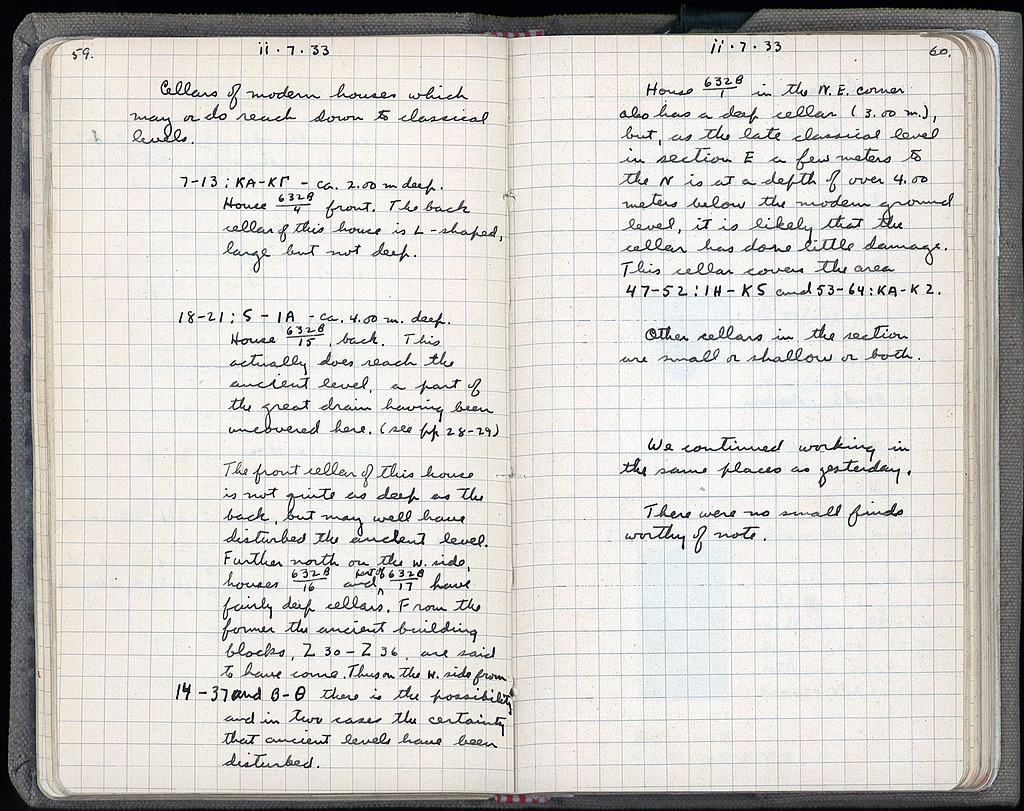 59.
ii · 7 · 33
Cellars of modern houses which
may or do reach down to classical
levels.
7-13 : KA-KΓ - ca. 2.00 m deep.
House 632B/4 front. The back
cellar of this house is L-shaped,
large but not deep.
18-21 : S - IA - ca. 4.00 m. deep.
House 632B/15, back. This
actually does reach the
ancient level, a part of
the great drain having been
uncovered here. (see pp 28-29)
The front cellar of this house
is not quite as deep as the
back, but may well have
disturbed the ancient level.
Further north on the W. side,
houses 632B/16 and part of 632B/17 have
fairly deep cellars. From the
former the ancient building
blocks, Z 30 - Z 36, are said
to have come. Thus on the W. side from
14-37 and B-Θ there is the possibility
and in two cases the certainty
that ancient levels have been
disturbed.
60.
ii · 7 · 33
House 632B/1 in the N.E. corner
also has a deep cellar (3.00 m.),
but, as the late classical level
in section E a few meters to
the N is at a depth of over 4.00
meters below the modern ground
level, it is likely that the
cellar has done little damage.
This cellar covers the area
47-52 : IH-KS and 53-64 : KA-KZ.
Other cellars in the section
are small or shallow or both.
We continued working in
the same places as yesterday.
There were no small finds
worthy of note.